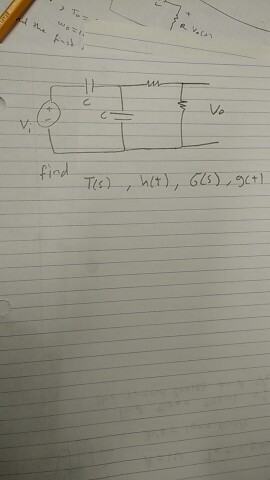 , To =
wo = 1,
nd the first,
R Vo(t)
+
C
C
+
-
Vi
Vo
find
T(s) , h(t) , G(s) , g(t)